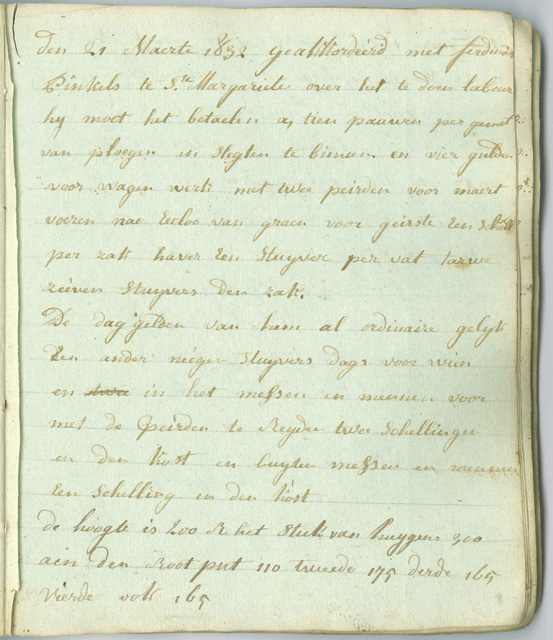 den 21 Maerte 1832 geakkordeerd met ferdin
Pinkels te Ste Margariete over het te doen labour
hy moet het betaelen a, tien pauwen per gemet
van ploegen en slyten te binnen en vier gulden
voor wagen werk met twee peirden voor maert
voeren nae Eecloo van graen voor geirste Een
per zak haver Een Stuyver per vat tarwe
zeeven Stuyvers den zak.
De dag gelden van hem al ordinaire gelyk
Een ander neegen Stuyvers dags voor wien
en twee in het messen en mennen voor
met de Peirden te Reyden twee Schellinge
en den kost en buyten messen en mennen
Een Schelling in den kost
de hoogte is 200 R het Stuk van huygens 300
ain den Root put 110 tweede 175 derde 165
vierde ook 165